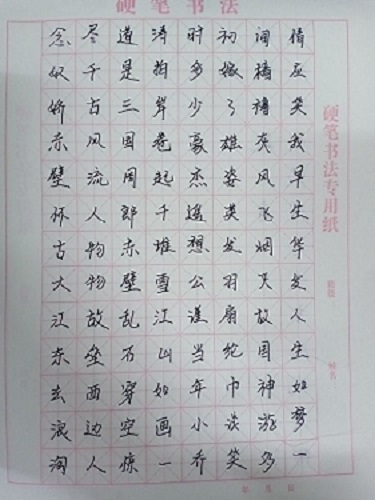 硬笔书法
念奴娇赤壁怀古大江东去浪淘
尽千古风流人物物故垒西边人
道是三国周郎赤壁乱石穿空惊
涛拍岸卷起千堆雪江山如画一
时多少豪杰遥想公谨当年小乔
初嫁了雄姿英发羽扇纶巾谈笑
间樯橹灰风飞烟灭故国神游多
情应笑我早生华发人生如梦一
硬笔书法专用纸
年 月 日